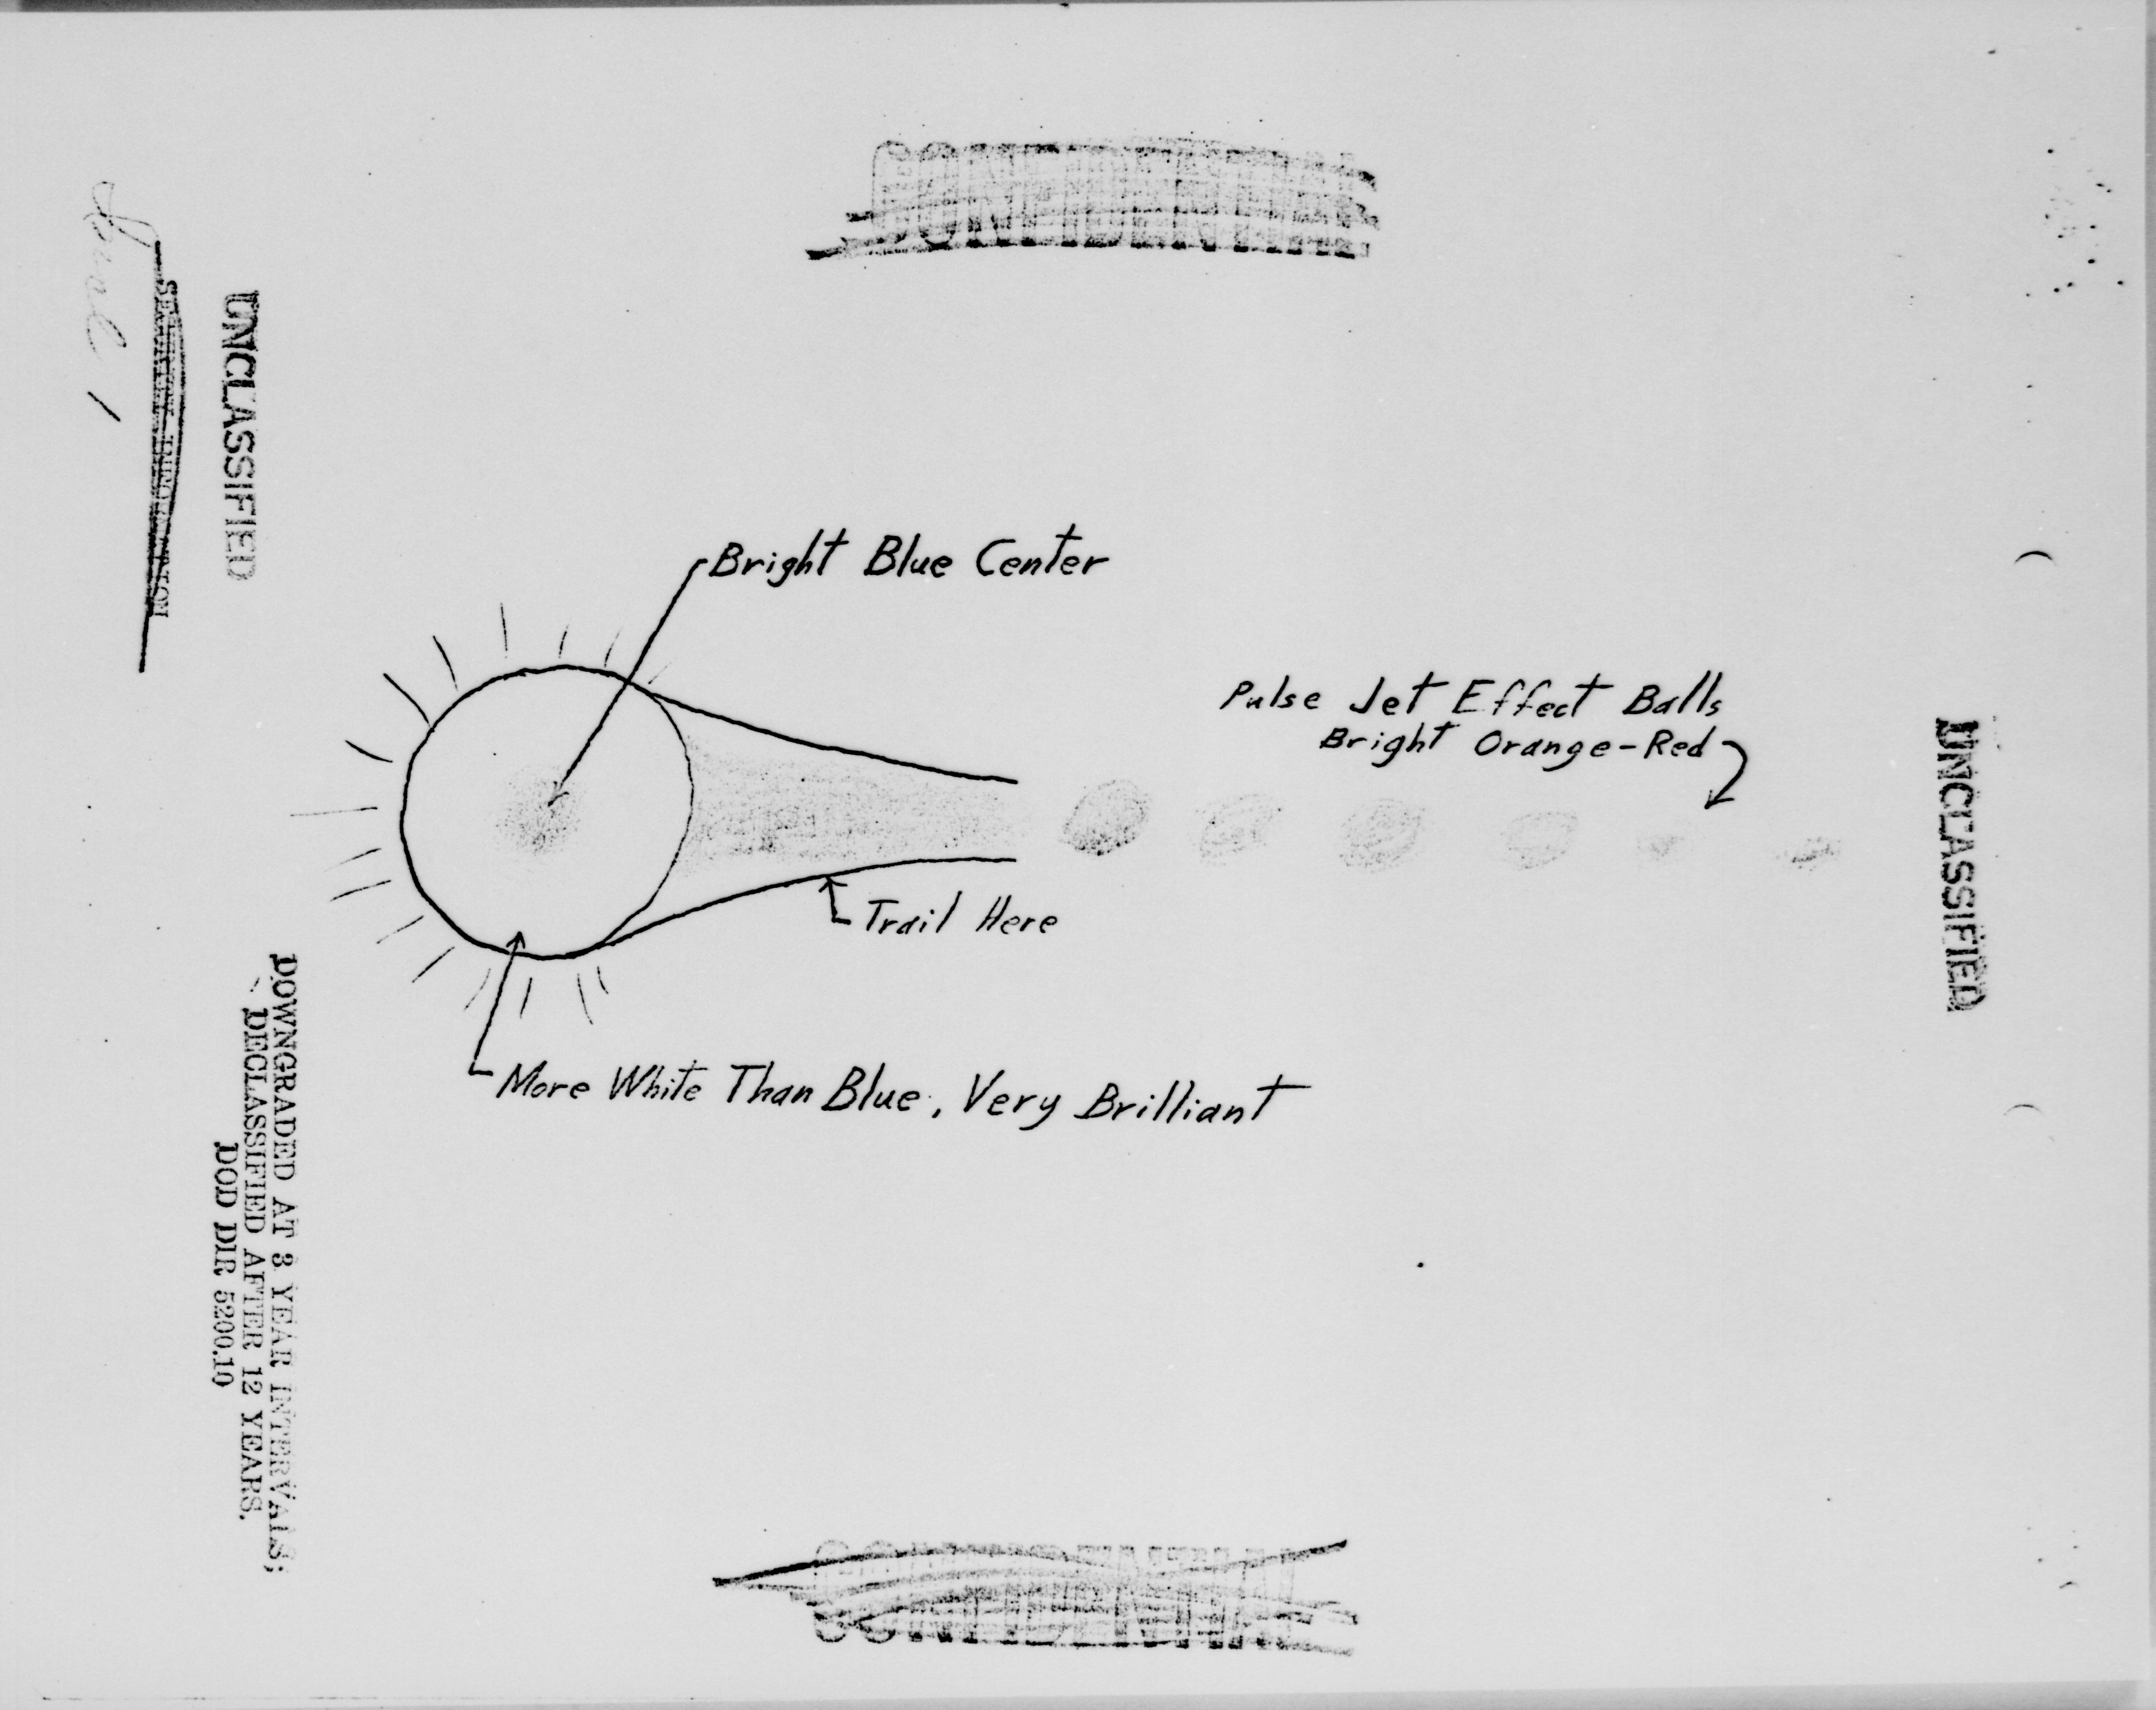 CONFIDENTIAL
UNCLASSIFIED
Bright Blue Center
Pulse Jet Effect Balls
Bright Orange-Red
UNCLASSIFIED
Trail Here
More White Than Blue, Very Brilliant
DOWNGRADED AT 3 YEAR INTERVALS;
DECLASSIFIED AFTER 12 YEARS.
DOD DIR 5200.10
CONFIDENTIAL